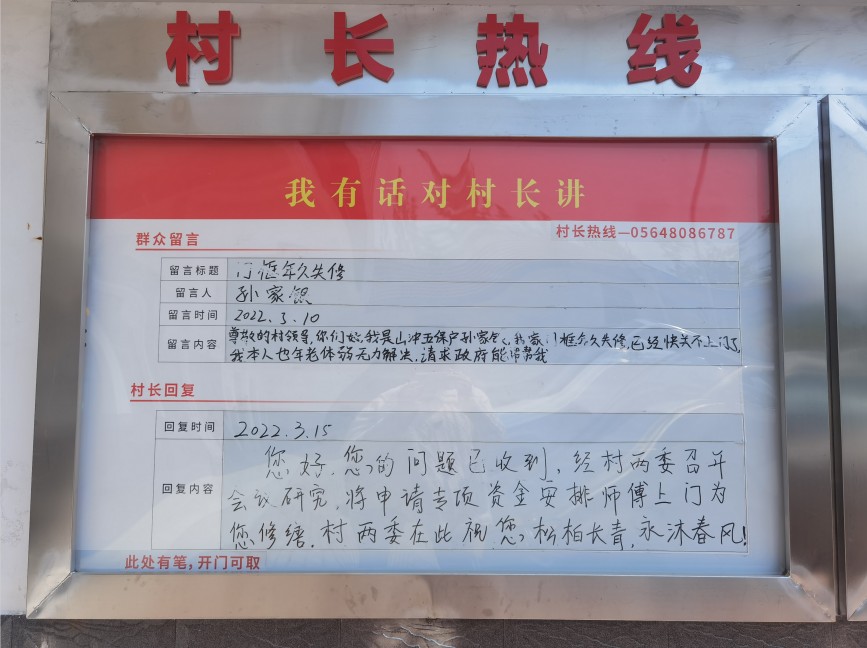 村长热线
我有话对村长讲
村长热线—05648086787
群众留言
留言标题 门框年久失修
留言人 孙家银
留言时间 2022.3.10
留言内容 尊敬的村领导,你们好,我是山冲五保户孙家银,我家门框年久失修,已经快关不上门了
我本人也年老体弱无力解决,请求政府能帮帮我
村长回复
回复时间 2022.3.15
回复内容 您好,您的问题已收到,经村两委召开
会议研究,将申请专项资金安排师傅上门为
您修缮,村两委在此祝您松柏长青,永沐春风!
此处有笔,开门可取